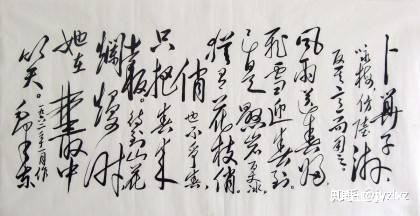 卜算子
咏梅 仿陆游
反其意而用之
风雨送春归
飞雪迎春到
已是悬崖百丈冰
犹有花枝俏
俏也不争春
只把春来
报。待到山花
烂漫时
她在丛中
笑。毛泽东
知乎